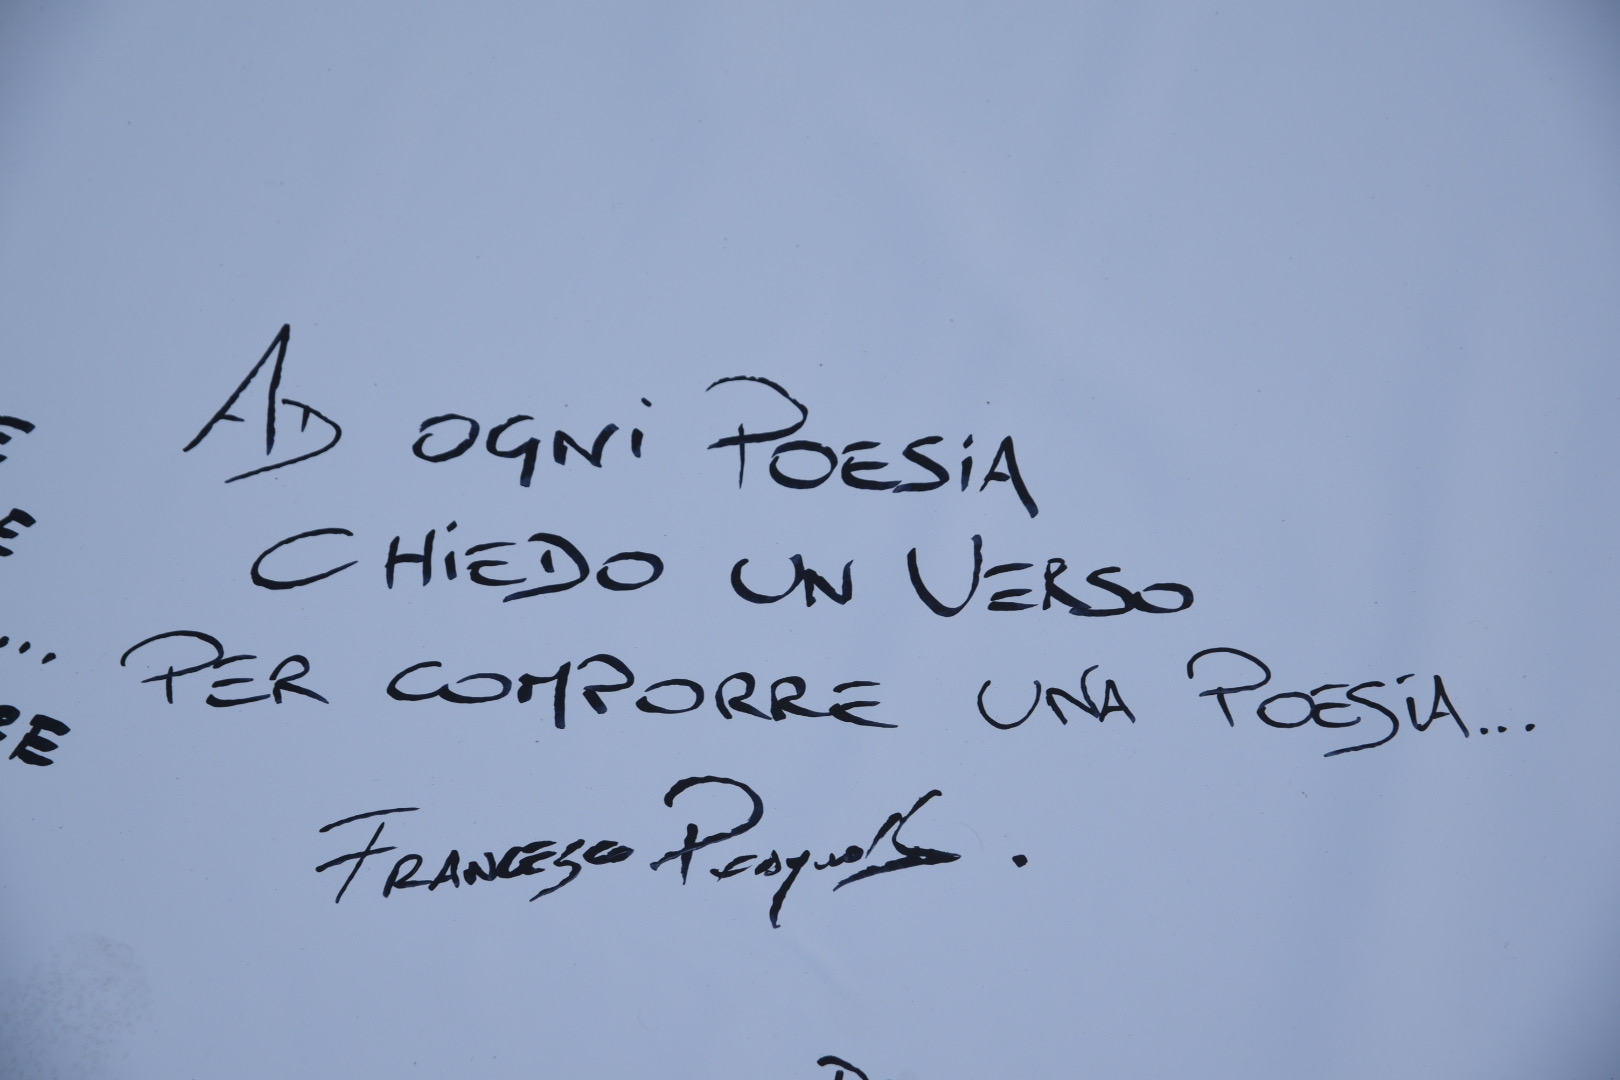 AD OGNI POESIA
CHIEDO UN VERSO
PER COMPORRE UNA POESIA...
FRANCESCO